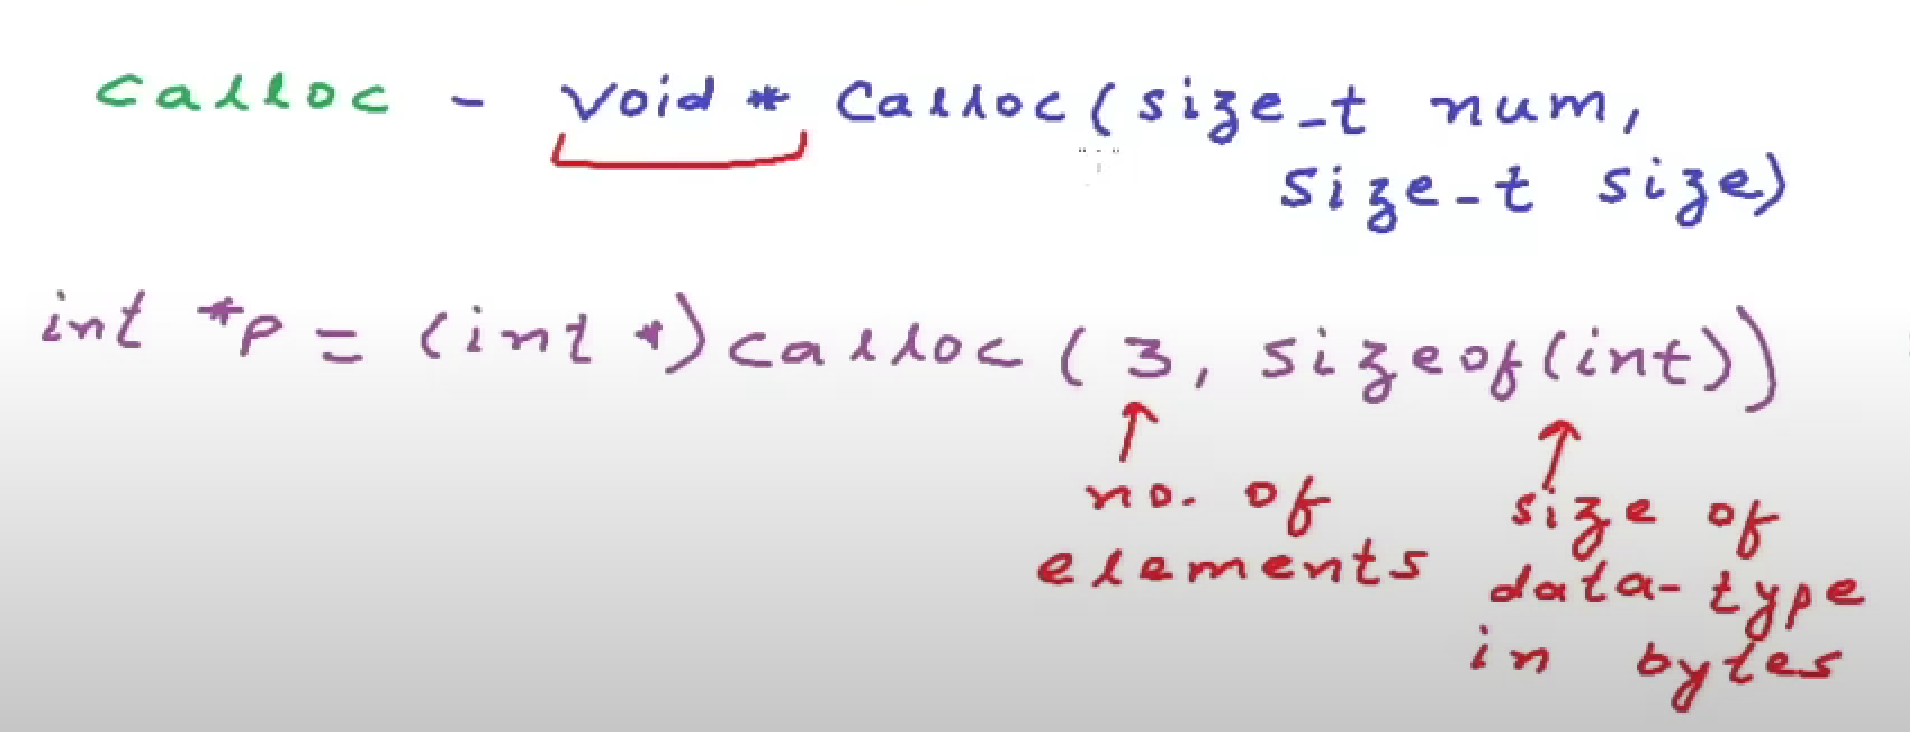 calloc - void * Calloc(size_t num,
size_t size)
int *p = (int *)calloc(3, sizeof(int))
no. of
elements
size of
data-type
in bytes